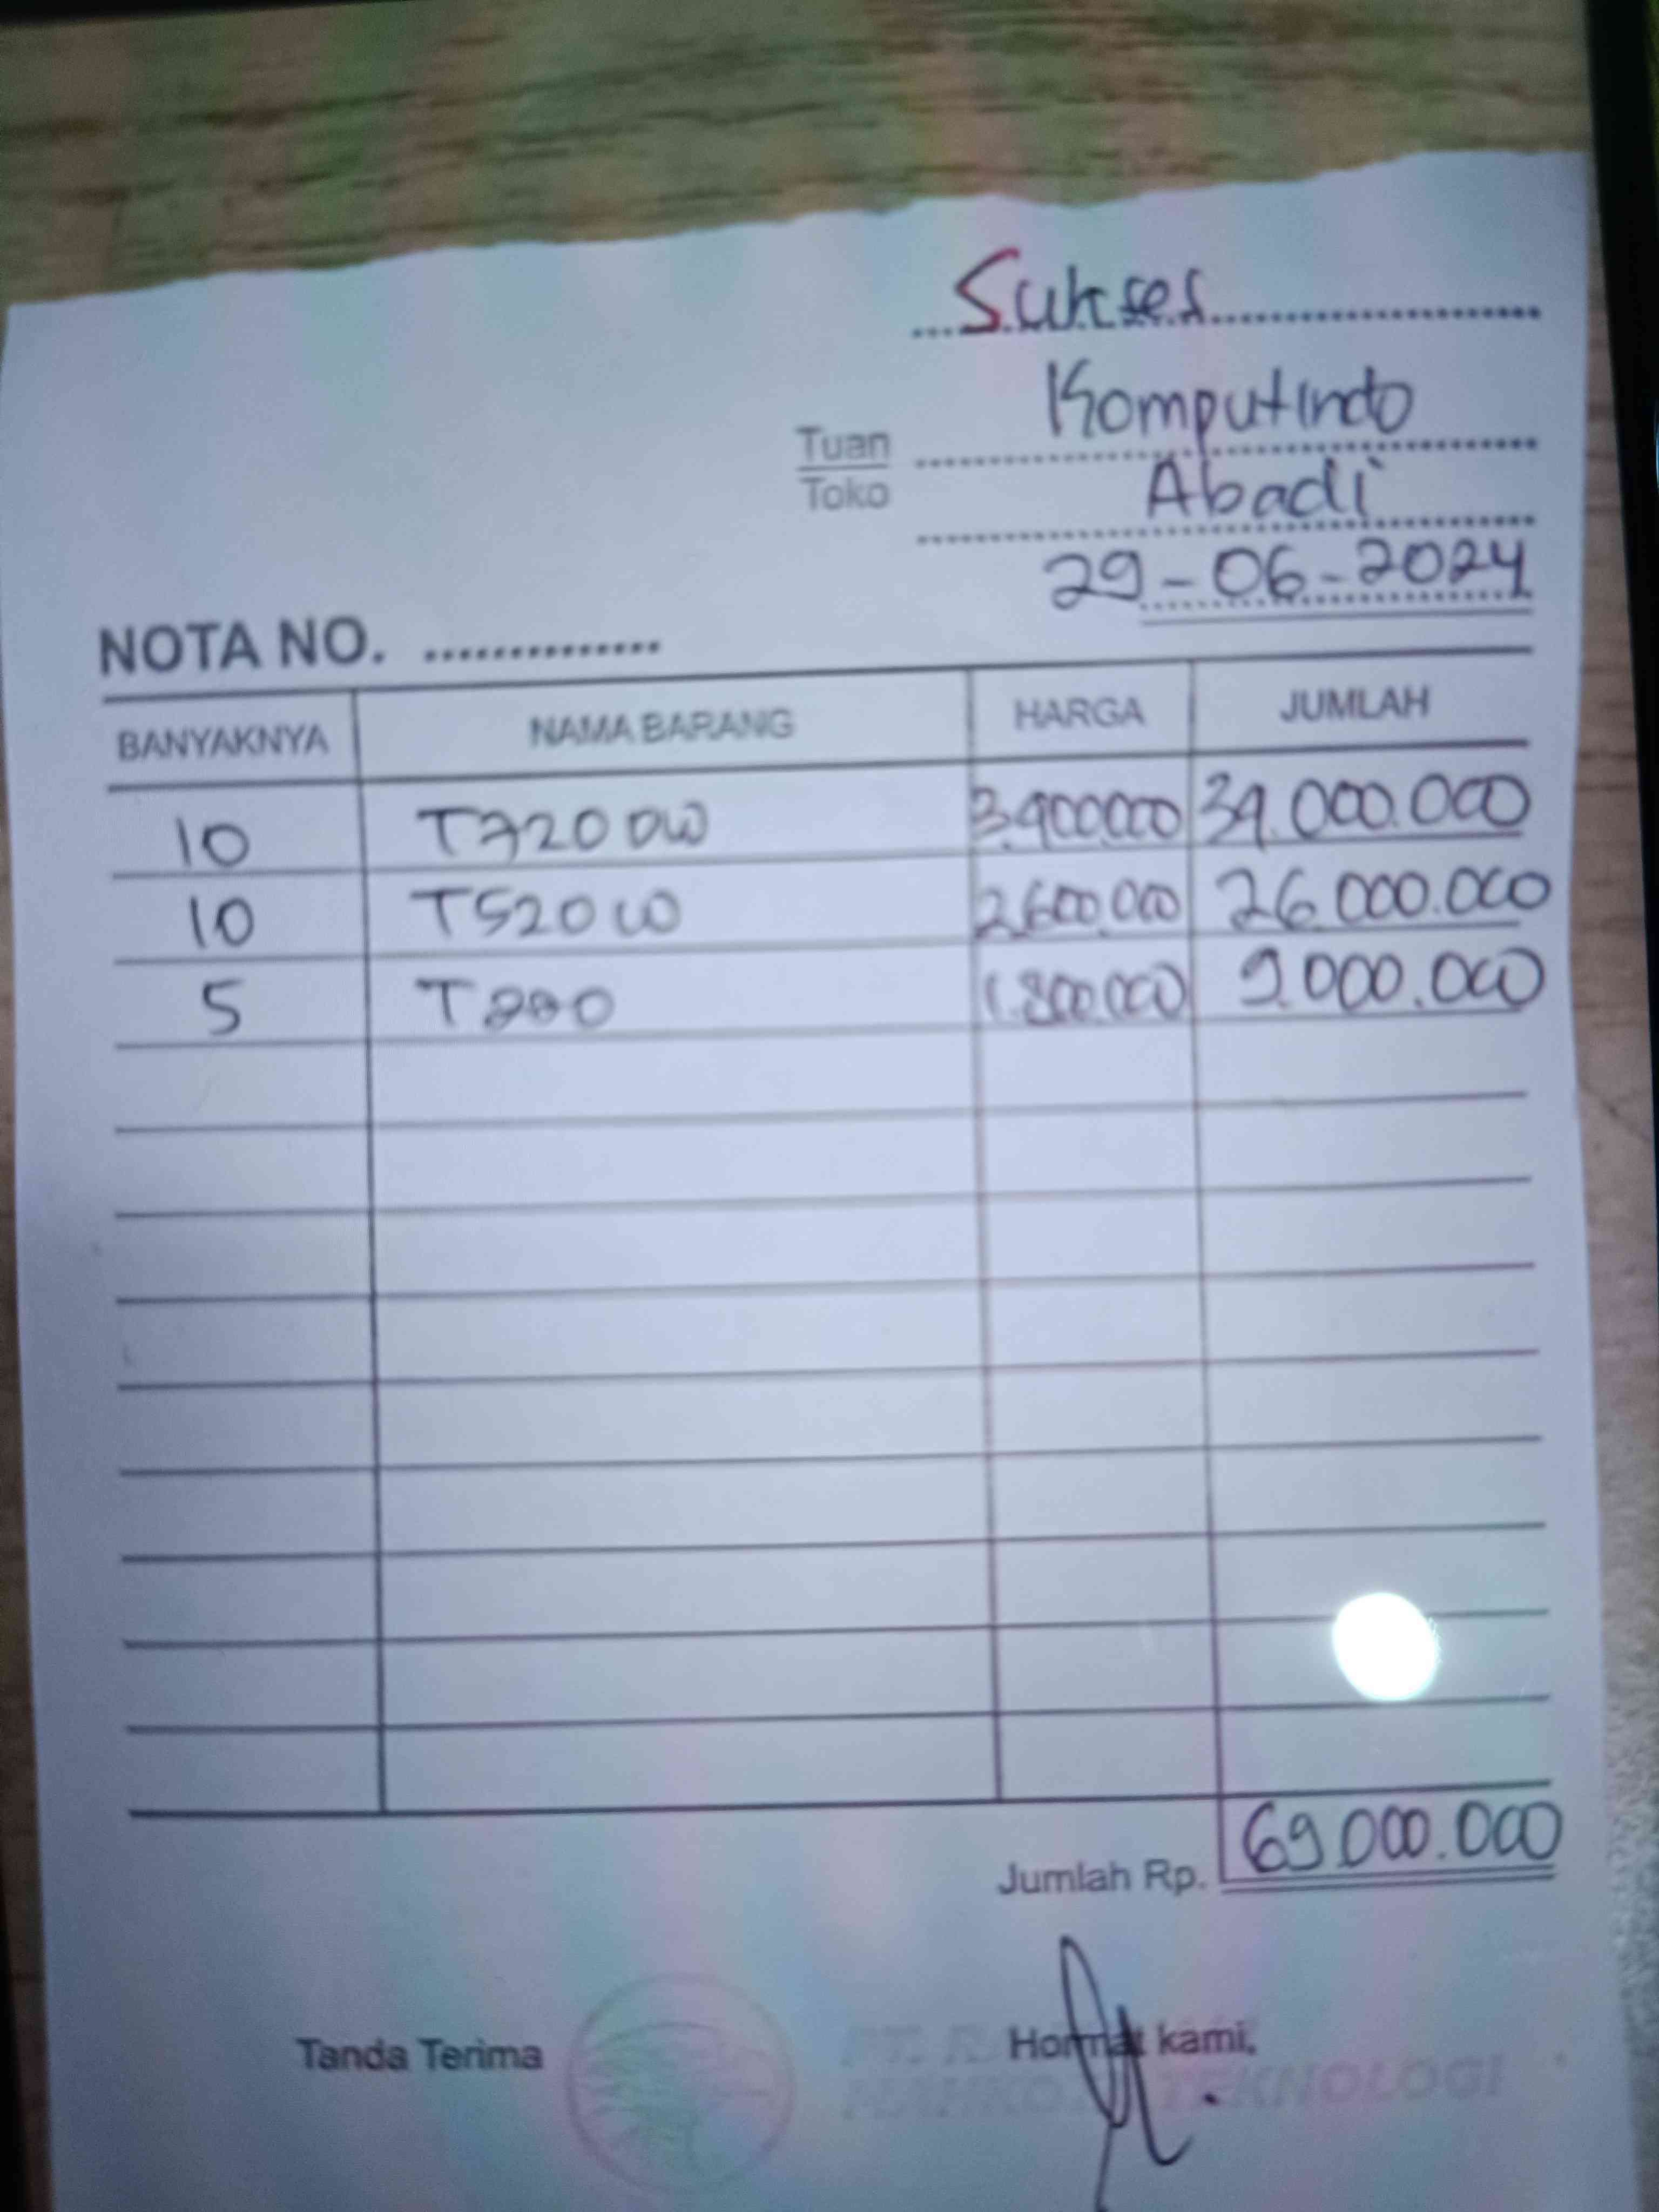 Sukses
Tuan Komputindo
Toko Abadi
29-06-2024
NOTA NO. ..............
BANYAKNYA NAMA BARANG HARGA JUMLAH
10 T720 DW 3.900.000 39.000.000
10 T520 W 2.600.000 26.000.000
5 1.800.000 9.000.000
Jumlah Rp. 69.000.000
Tanda Terima Hormat kami,
PT.
TEKNOLOGI